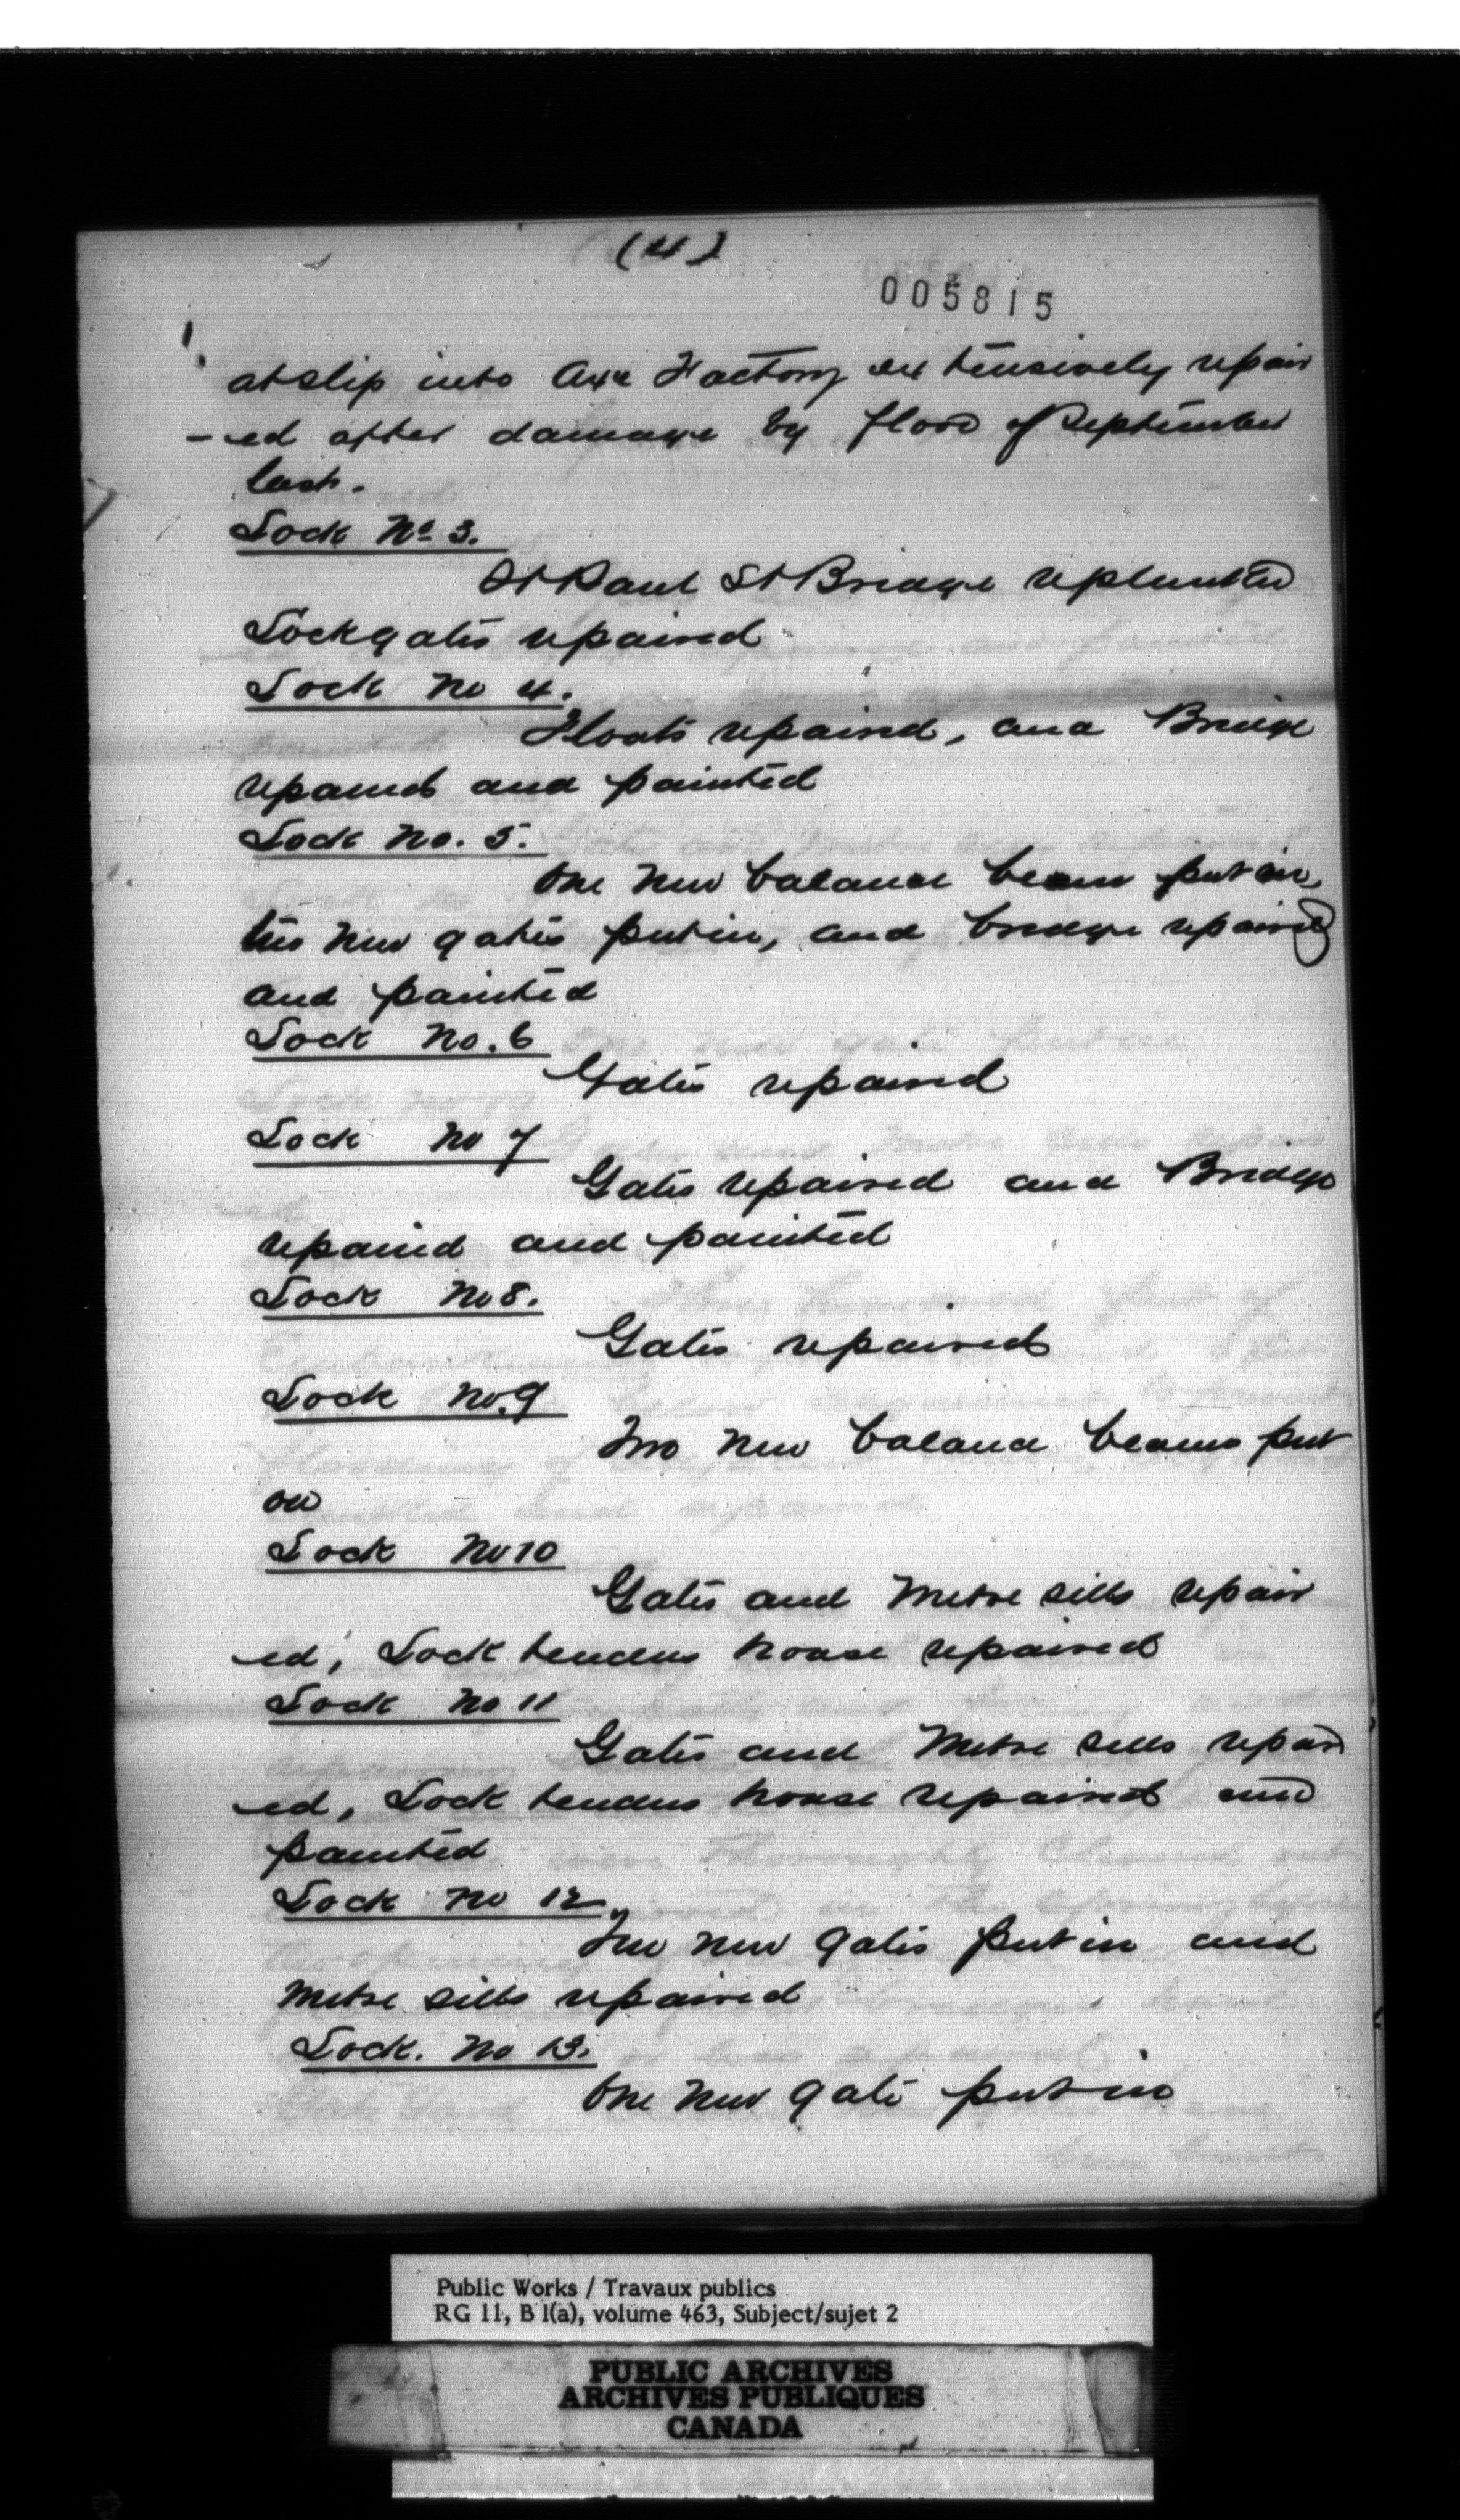 (4)
005815
at slip into Axe Factory extensively repair
-ed after damage by flood of September
last.
Lock No 3.
St Paul St Bridge replanked
Lockgates repaired
Lock No 4.
Floats repaired, and Bridge
repaired and painted
Lock No. 5.
One new balance beam put in,
two new gates put in, and bridge repaired
and painted
Lock No. 6
Gates repaired
Lock No 7
Gates repaired and Bridge
repaired and painted
Lock No 8.
Gates repaired
Lock No. 9
Two new balance beams put
on
Lock No 10
Gates and Metre sills repair
-ed, Lock tenders house repaired
Lock No 11
Gates and Metre sills repair
-ed, Lock tenders house repaired and
painted
Lock No 12
Two new gates put in and
Metre sills repaired
Lock. No 13.
One new gate put in
Public Works / Travaux publics
RG 11, B 1(a), volume 463, Subject/sujet 2
PUBLIC ARCHIVES
ARCHIVES PUBLIQUES
CANADA